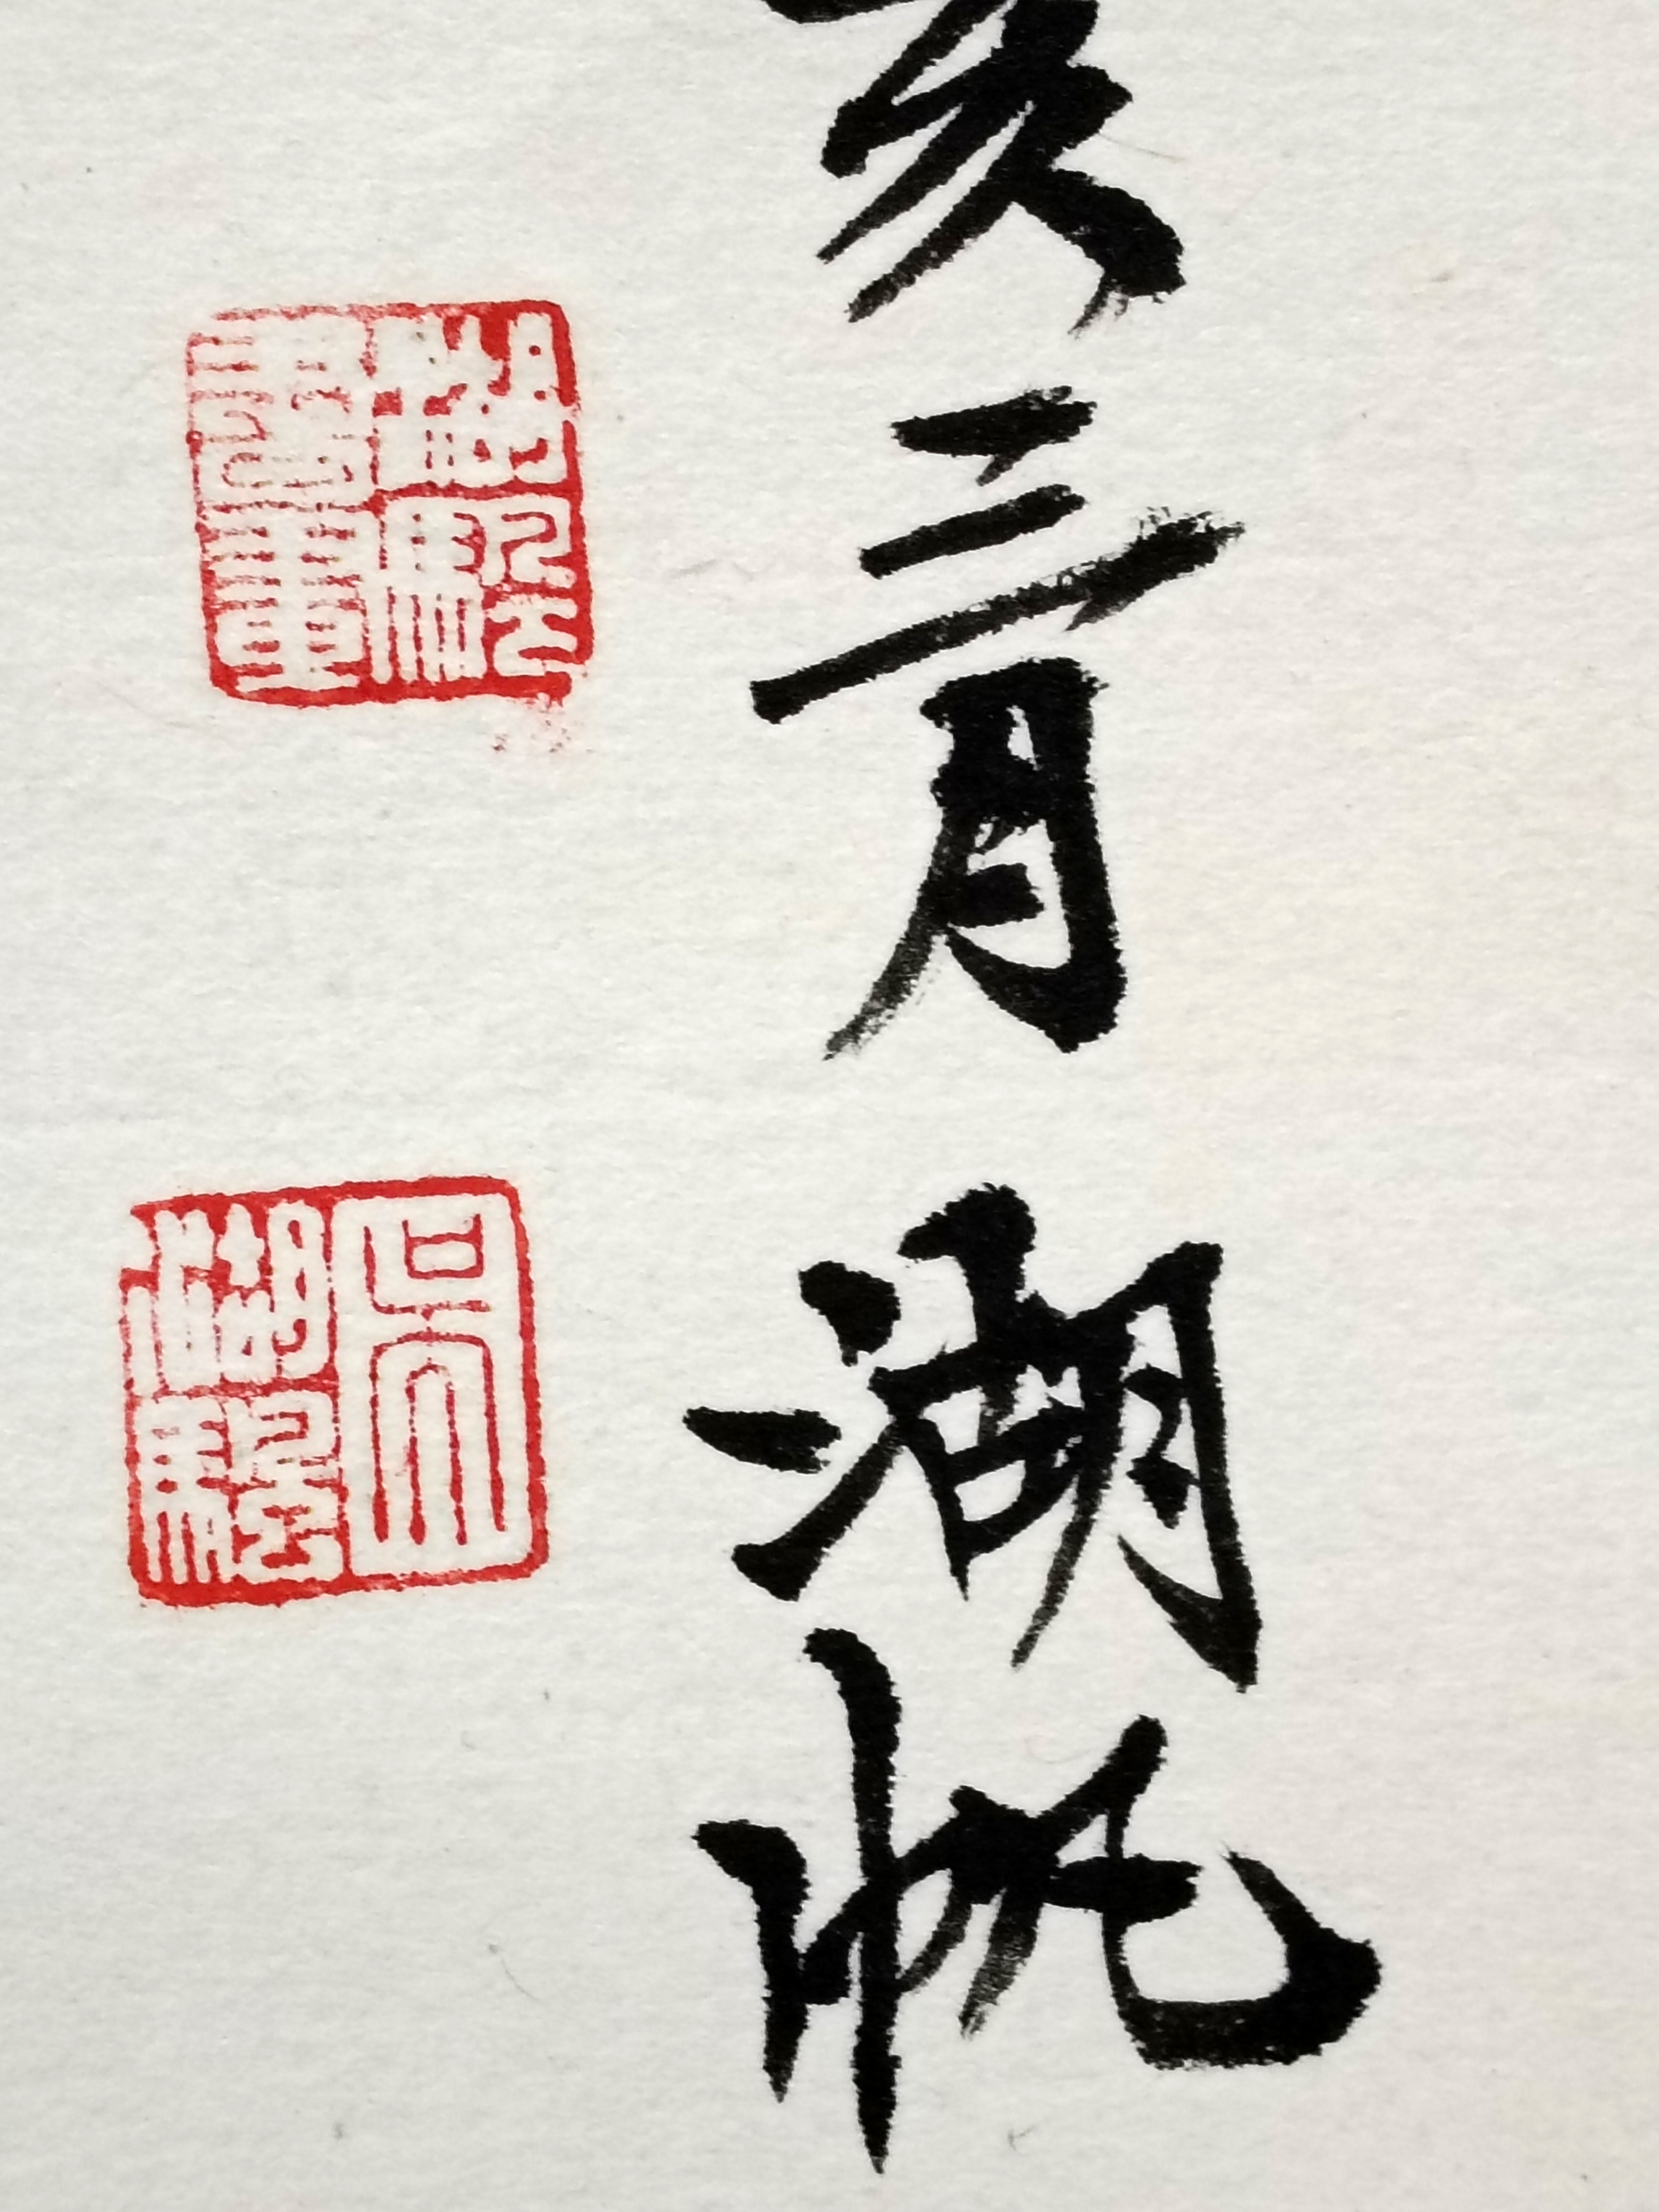 亥三月 湖帆
湖颿書畫
吳湖颿